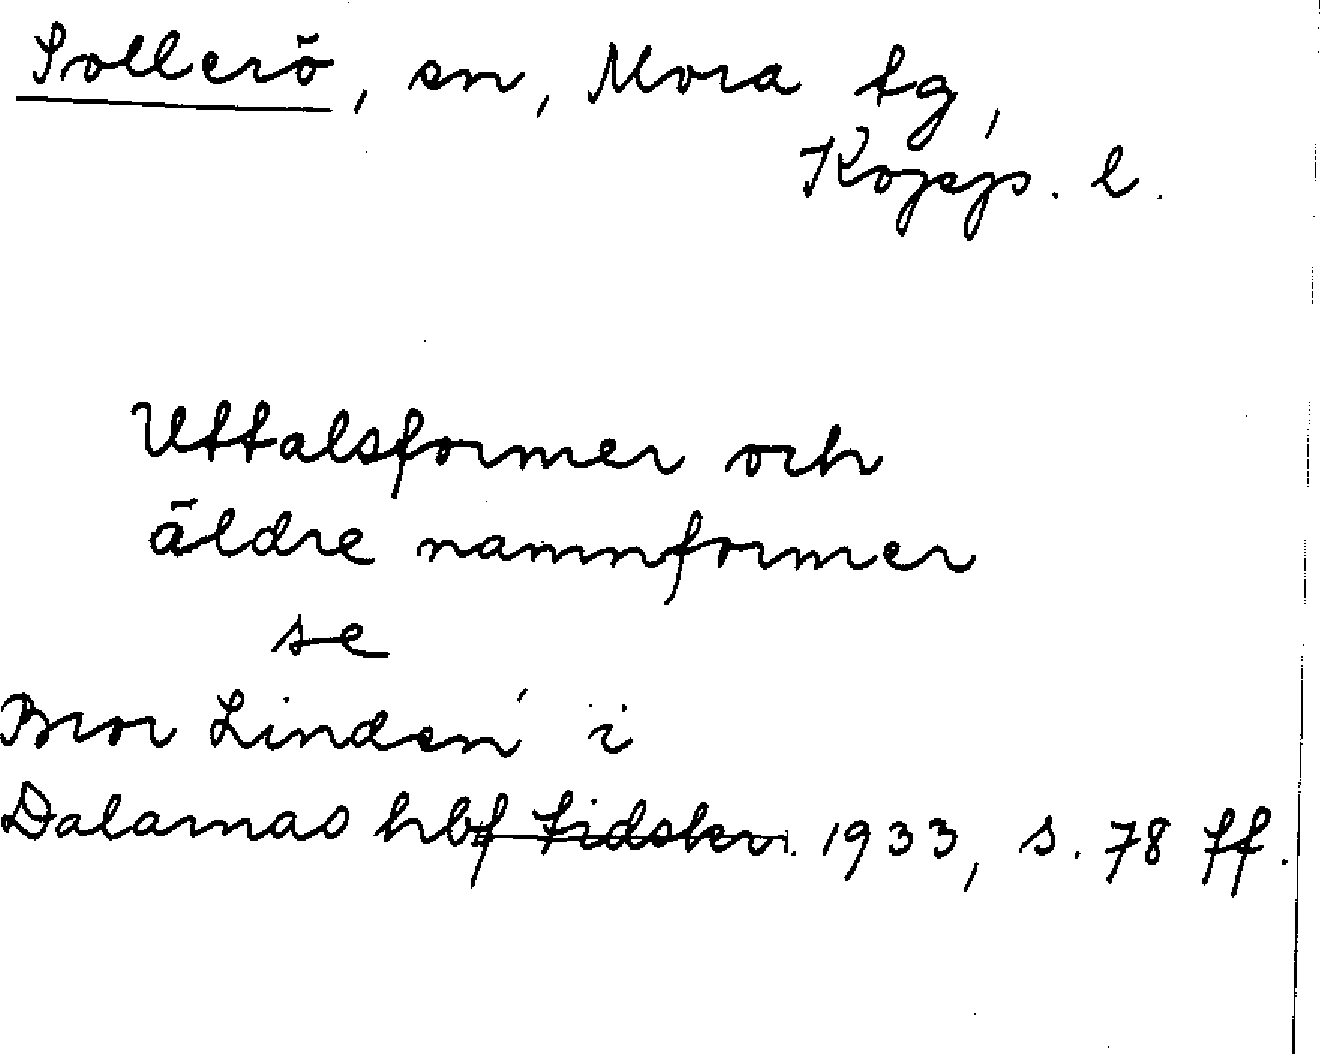 Sollerö, sn, Mora tg,
Kopp. l.
Uttalsformer och
äldre namnformer
se
Bror Lindén i
Dalarnas hbf Tidskr. 1933, s. 78 ff.